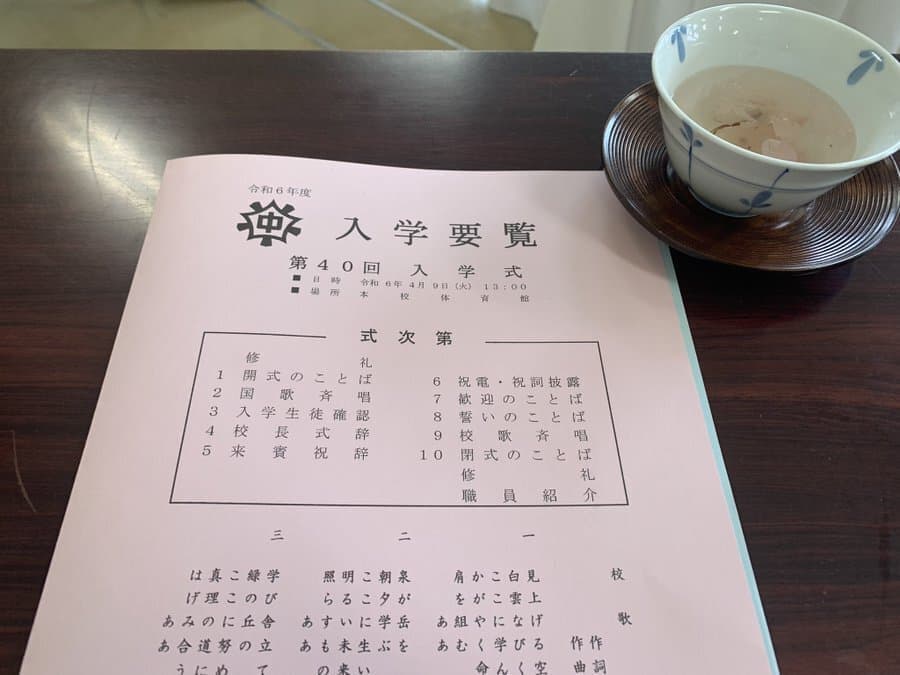 令和6年度
沖
入学要覧
第40回 入学式
■ 日時 令和6年4月9日(火) 13:00
■ 場所 本校体育館
式次第
修礼
1 開式のことば
2 国歌斉唱
3 入学生徒確認
4 校長式辞
5 来賓祝辞
6 祝電・祝詞披露
7 歓迎のことば
8 誓いのことば
9 校歌斉唱
10 閉式のことば
修礼
職員紹介
校歌
作詞
作曲
一
見上げる空
白雲なびく
ここに学ん
かがやく命
肩を組む
ああ
二
泉が岳を
朝夕学ぶ
ここに生い
明るい未来
照らすもの
ああ
三
学び舎立て
緑の丘の
ここに努め
真理の道に
はげみ合う
ああ